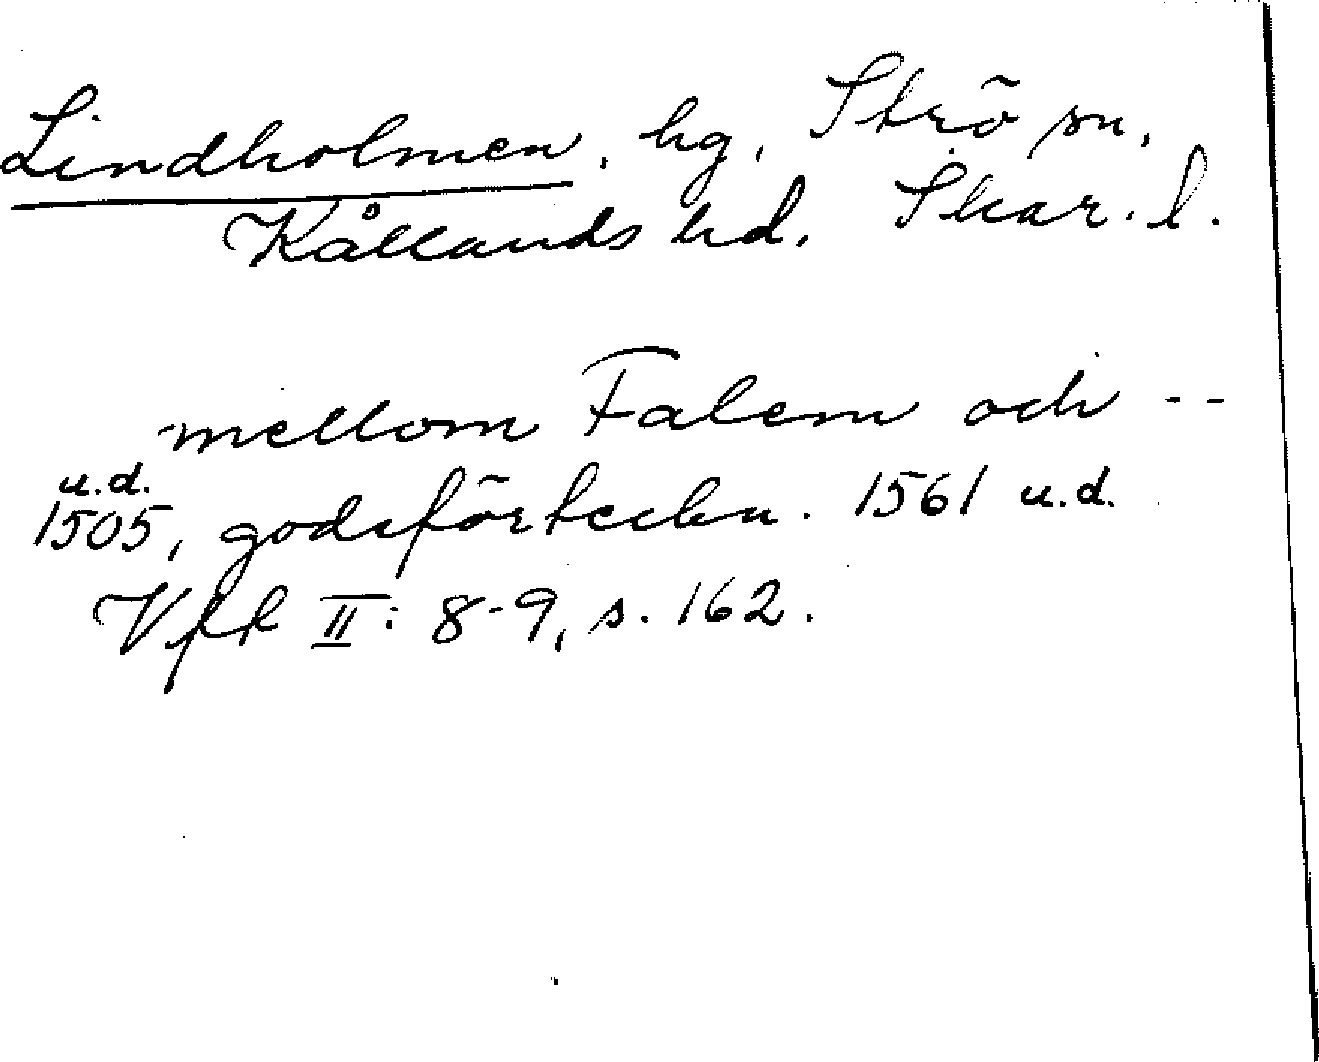 Lindholmen, hg, Strö sn,
Kållands hd, Skar. l.
mellom Falem och --
u.d.
1505, godsförteckn. 1561 u.d.
Vfk II: 8-9, s. 162.